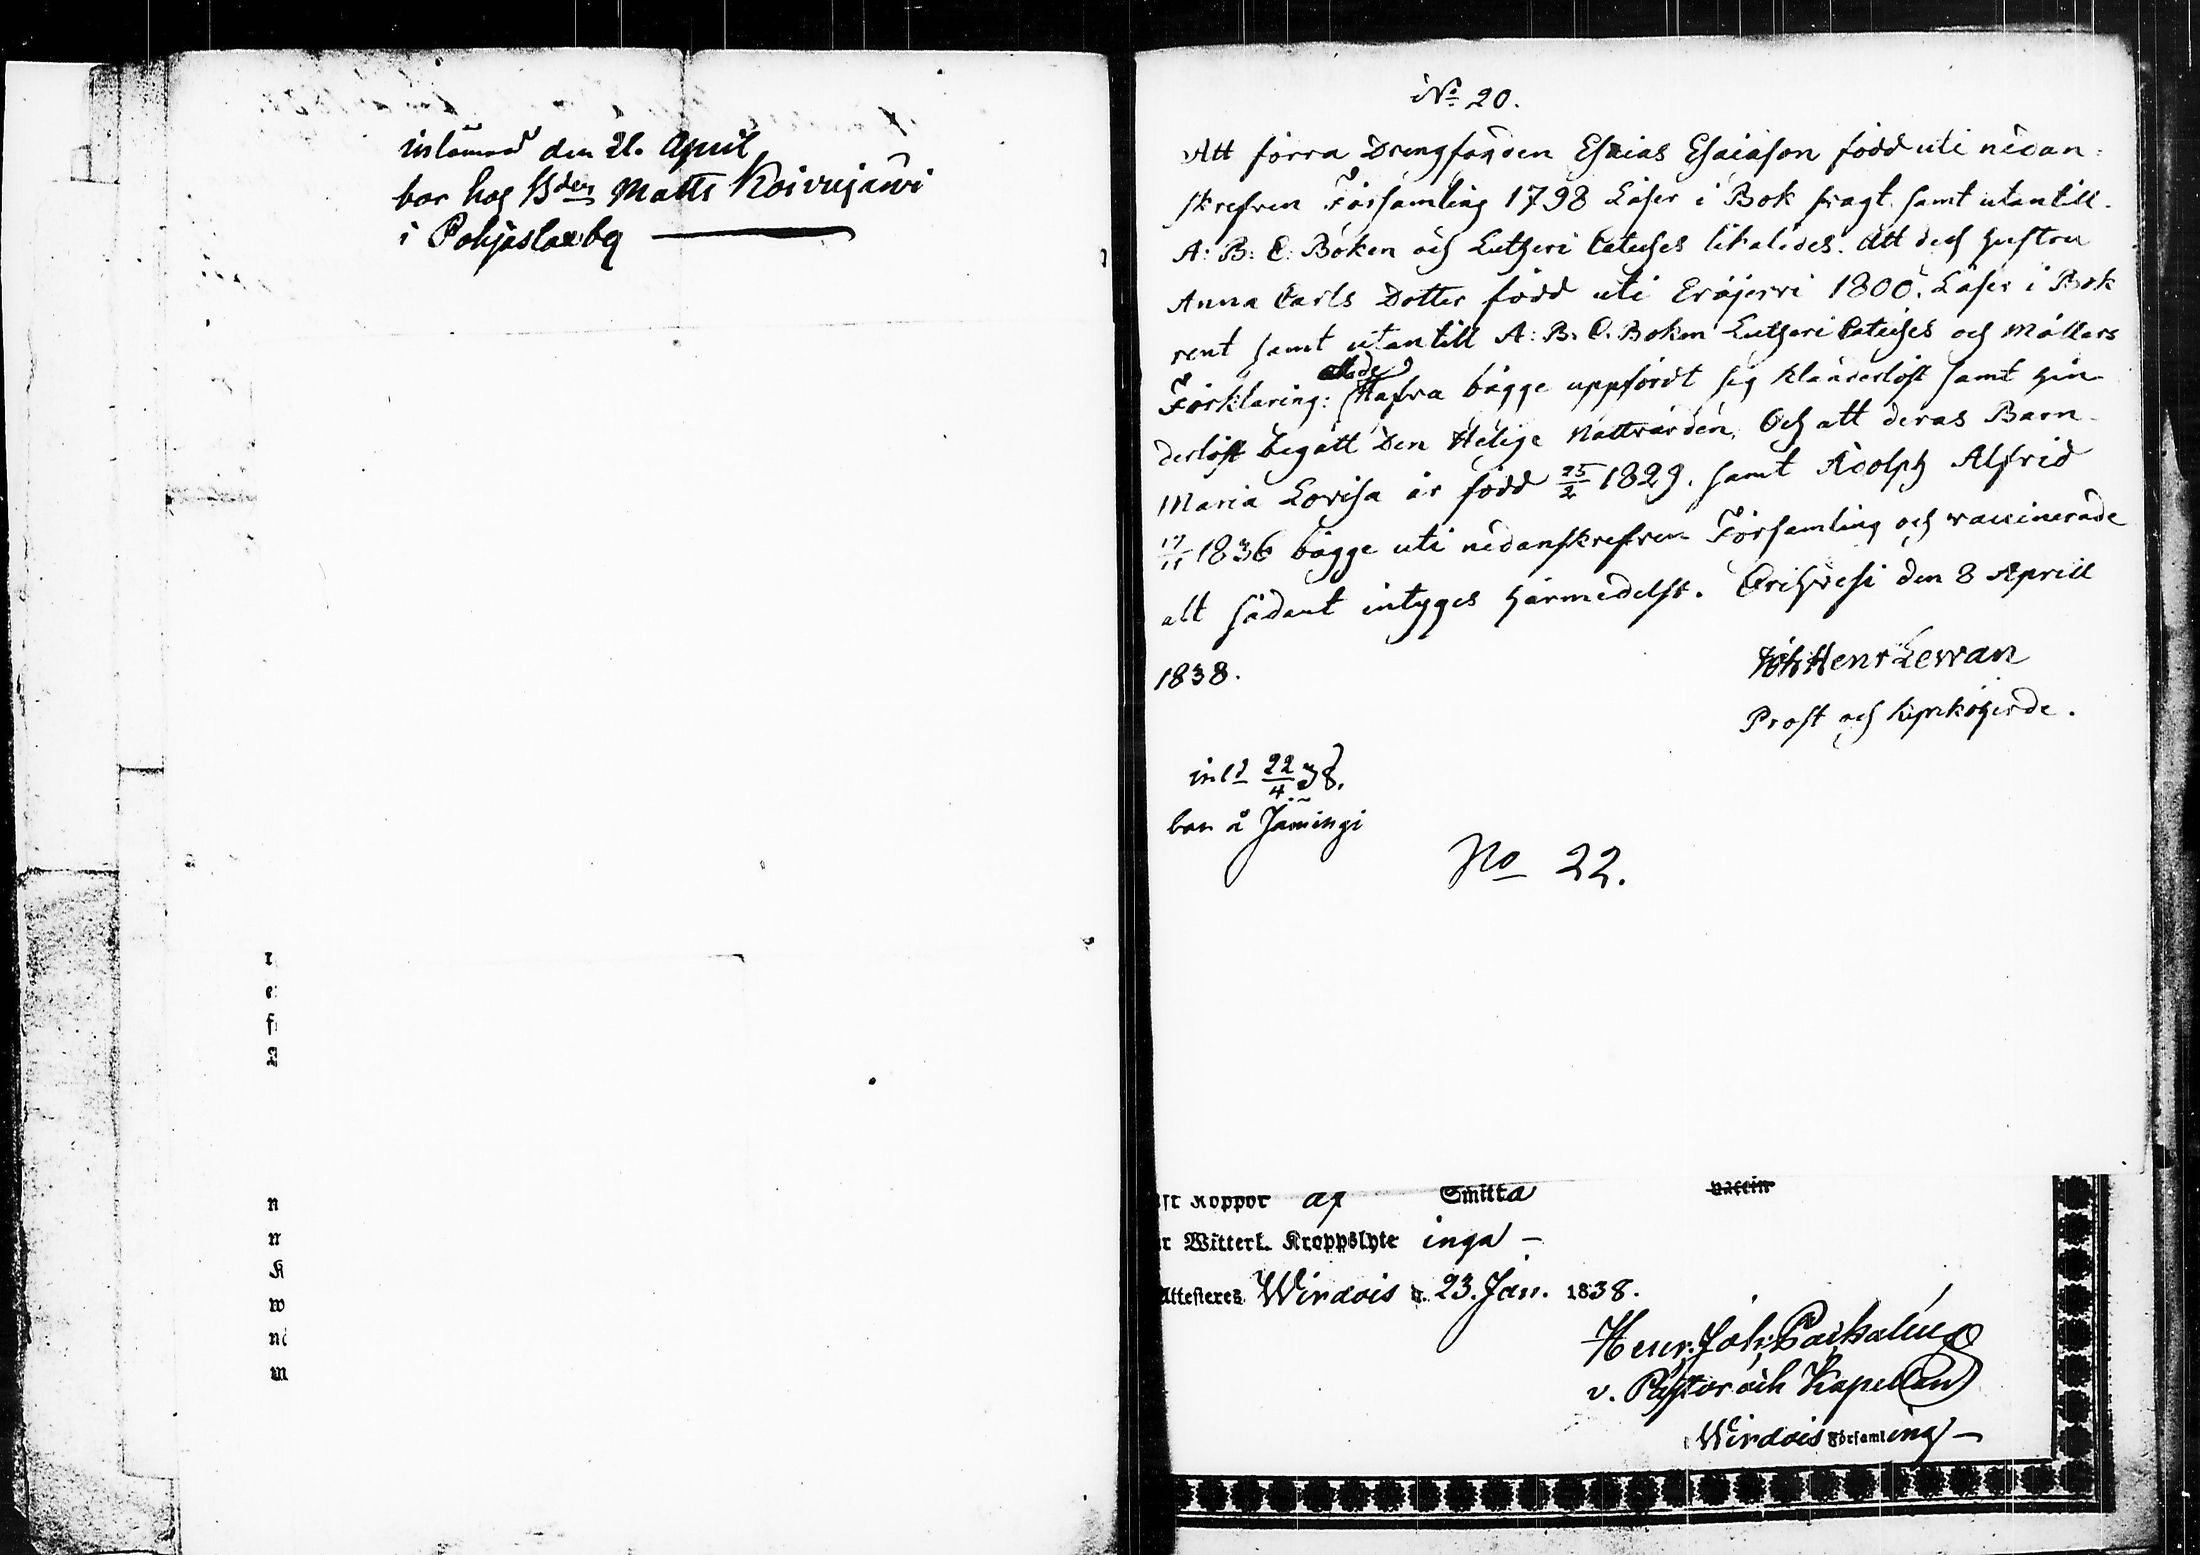 inlämnad den 21. April
bor hos Bden Matts Koivujärwi
i Pohjaslaxby
r
e
f
n
m
K
w
nö
m
No 20.
Att förra Drengfogden Esaias Esaiason född uti nedan-
skrefven Församling 1798 Läser i Bok svagt samt utantill
A: B: C: Boken och Lutheri Cateches likaledes. Att dess hustru
Anna Carls Dotter född uti Eräjervi 1800. Läser i Bok
rent samt utantill A: B. C. Boken Lutheri Cateches och Möllers
Förklaring: Hafva bägge uppfördt sig klanderlöst samt hin-
derlöst begått Den Helige Nattvarden, Och att deras Barn
Maria Lovisa är född 25/2 1829. samt Adolph Alfrid
17/11 1836 bägge uti nedanskrefven Församling och vaccinerade
alt sådant intyges härmedelst. Orihvesi den 8 Aprill
1838.
Joh Henr Lewan
Prost och kyrkoherde.
inld 22/4 38.
bor å Jämingi
No 22.
Koppor af Smitta vaccin
r Witterl. Kroppslyte inga –
Attesteres Wirdois d. 23. Jan. 1838.
Henr. Joh. Carhalin
v. Pastor och Kapellan
i Wirdois Församling –